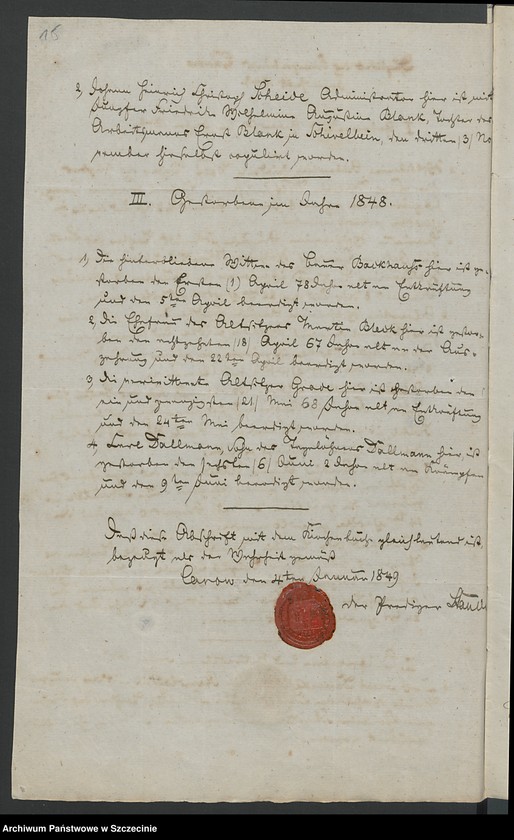 15
2, Johann Heinrich Christoph Scheide Administrator hier ist mit
Jungfer Friedrike Wilhelmine Augustine Blank, Tochter des
Arbeitsmannes Ernst Blank in Schivelbein, den dritten /3/ No
vember hieselbst copulirt worden.
III. Gestorben im Jahre 1848.
1, Die hinterbliebene Wittwe des Bauer Backhaus hier ist ge-
storben den Ersten (1) April 78 Jahre alt an Entkräftung
und den 5ten April beerdigt worden.
2, Die Ehefrau des Altsitzers Martin Bleck hier ist gestor-
ben den achtzehnten /18/ April 67 Jahre alt an der Aus-
zehrung und den 22ten April beerdigt worden.
3, Die verwittwete Altsitzer Grade hier ist gestorben den
ein und zwanzigsten /21/ Mai 68 Jahre alt an Entkräftung
und den 24ten Mai beerdigt worden.
4, Carl Dallmann, Sohn des Tagelöhners Dallmann hier, ist
gestorben den sechsten /6/ Juni 2 Jahre alt an Krämpfen
und den 9ten Juni beerdigt worden.
Daß diese Abschrift mit dem Kirchenbuche gleichlautend ist,
bezeugt als der Wahrheit gemäß
Carow den 4ten Januar 1849
der Prediger
Archiwum Państwowe w Szczecinie